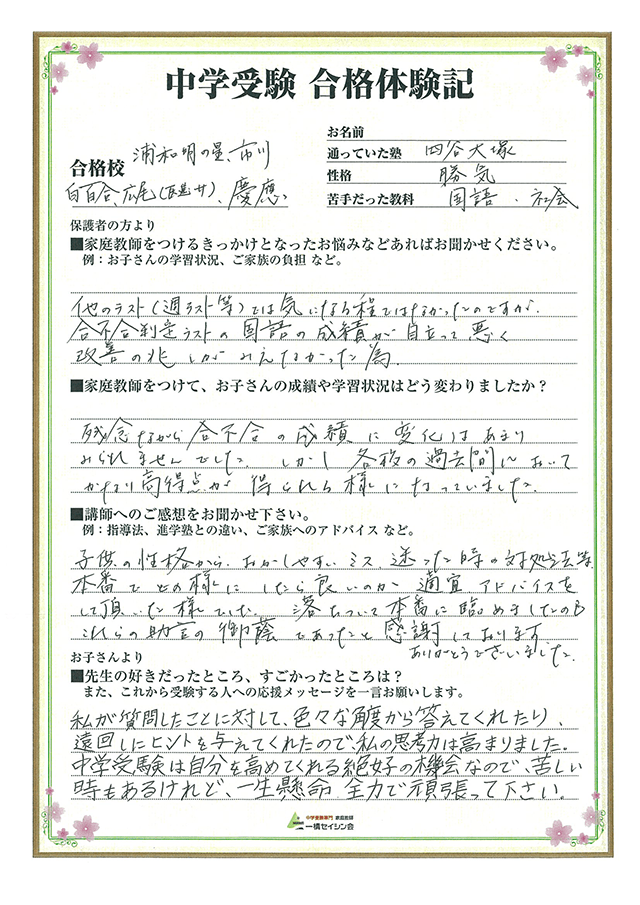 中学受験 合格体験記
合格校 浦和明の星、市川
白百合、広尾(医進サ)、慶應
お名前
通っていた塾 四谷大塚
性格 勝気
苦手だった教科 国語、社会
保護者の方より
■家庭教師をつけるきっかけとなったお悩みなどあればお聞かせください。
例:お子さんの学習状況、ご家族の負担 など。
他のテスト(週テスト等)では気になる程ではなかったのですが、
合不合判定テストの国語の成績が目立って悪く
改善の兆しがみえなかった為。
■家庭教師をつけて、お子さんの成績や学習状況はどう変わりましたか?
残念ながら合不合の成績に変化はあまり
みられませんでした。しかし各校の過去問において
かなり高得点が得られる様になっていました。
■講師へのご感想をお聞かせ下さい。
例:指導法、進学塾との違い、ご家族へのアドバイス など。
子供の性格から、おかしやすいミス、迷った時の対処法等、
本番でどの様にしたら良いのか適宜アドバイスを
して頂いた様でした。落ちついて本番に臨めましたのも
これらの助言の御蔭であったと感謝しております。
ありがとうございました。
お子さんより
■先生の好きだったところ、すごかったところは?
また、これから受験する人への応援メッセージを一言お願いします。
私が質問したことに対して、色々な角度から答えてくれたり、
遠回しにヒントを与えてくれたので、私の思考力は高まりました。
中学受験は自分を高めてくれる絶好の機会なので、苦しい
時もあるけれど、一生懸命全力で頑張って下さい。
中学受験専門 家庭教師
一橋セイシン会